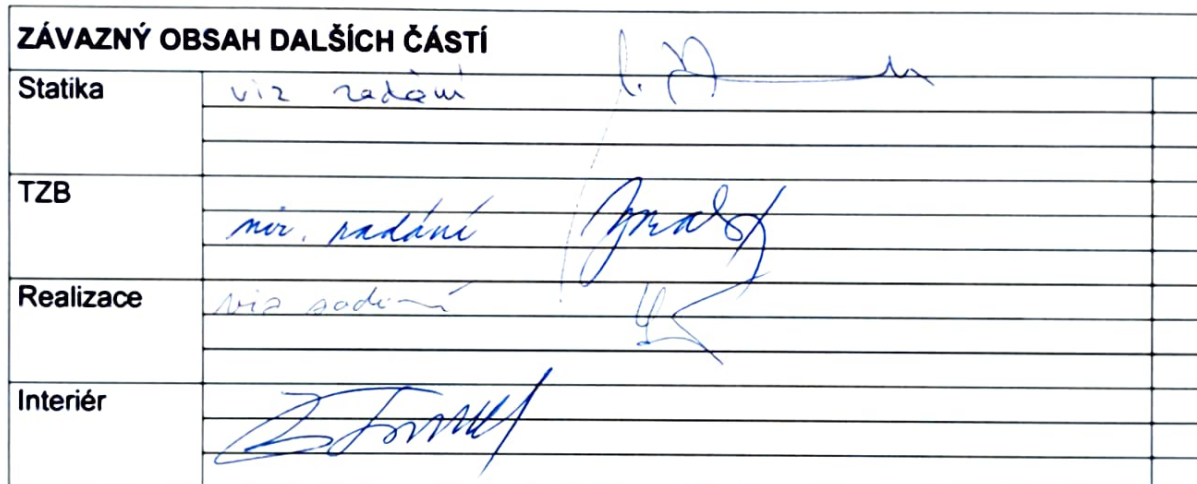 ZÁVAZNÝ OBSAH DALŠÍCH ČÁSTÍ
Statika viz zadání
TZB viz. zadání
Realizace viz zadání
Interiér